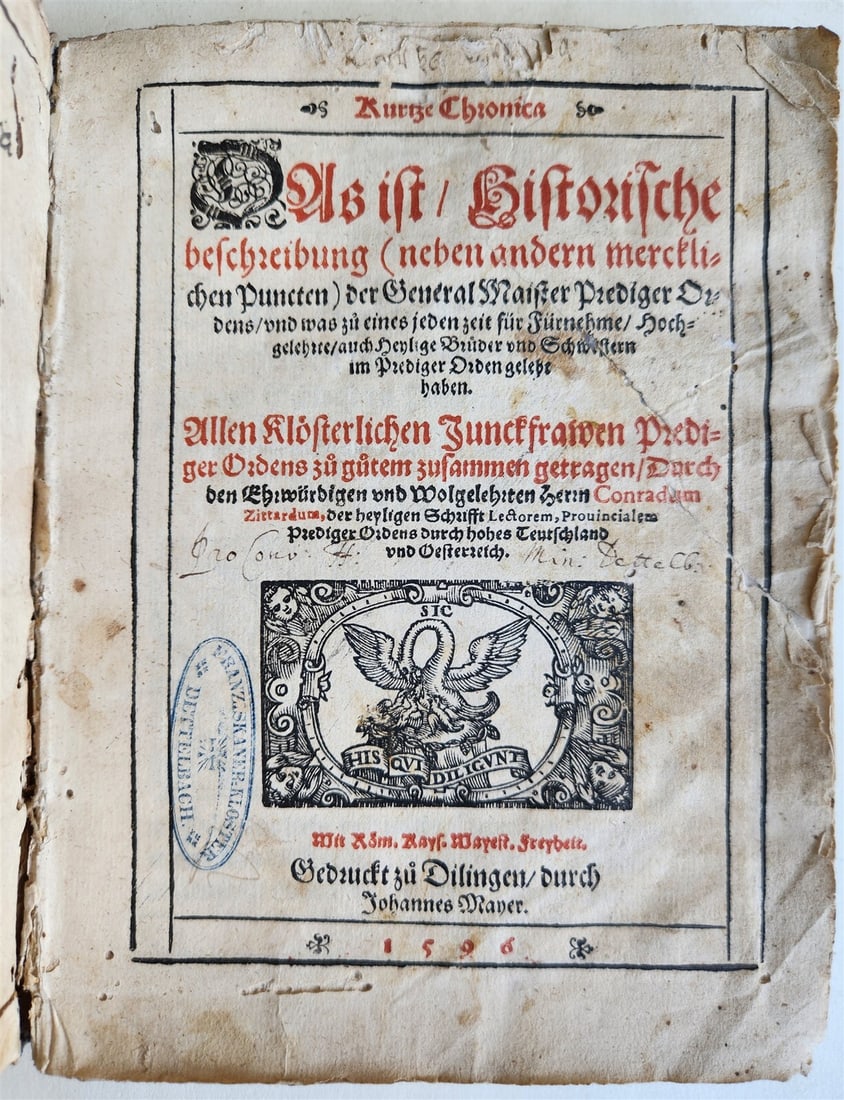 Kurtze Chronica
DAs ist / Historische
beschreibung (neben andern merckli-
chen Puncten) der General Maister Prediger Or-
dens/vnd was zů eines jeden zeit für Fürnehme/ Hoch-
gelehrte/auch Heylige Brüder vnd Schwestern
im Prediger Orden gelebt
haben.
Allen Klösterlichen Junckfrawen Predi-
ger Ordens zů gůtem zusammen getragen/Durch
den Ehrwürdigen vnd Wolgelehrten Herrn Conradum
Zittardum, der heyligen Schrifft Lectorem, Prouincialem
Prediger Ordens durch hohes Teutschland
vnd Oesterreich.
Pro Conv: Min: Dettelb:
SIC
HIS QVI DILIGVNT
FRANZISKANER-KLOSTER
DETTELBACH
Mit Röm. Kays. Mayest. Freyheit.
Gedruckt zů Dilingen/durch
Johannes Mayer.
1596